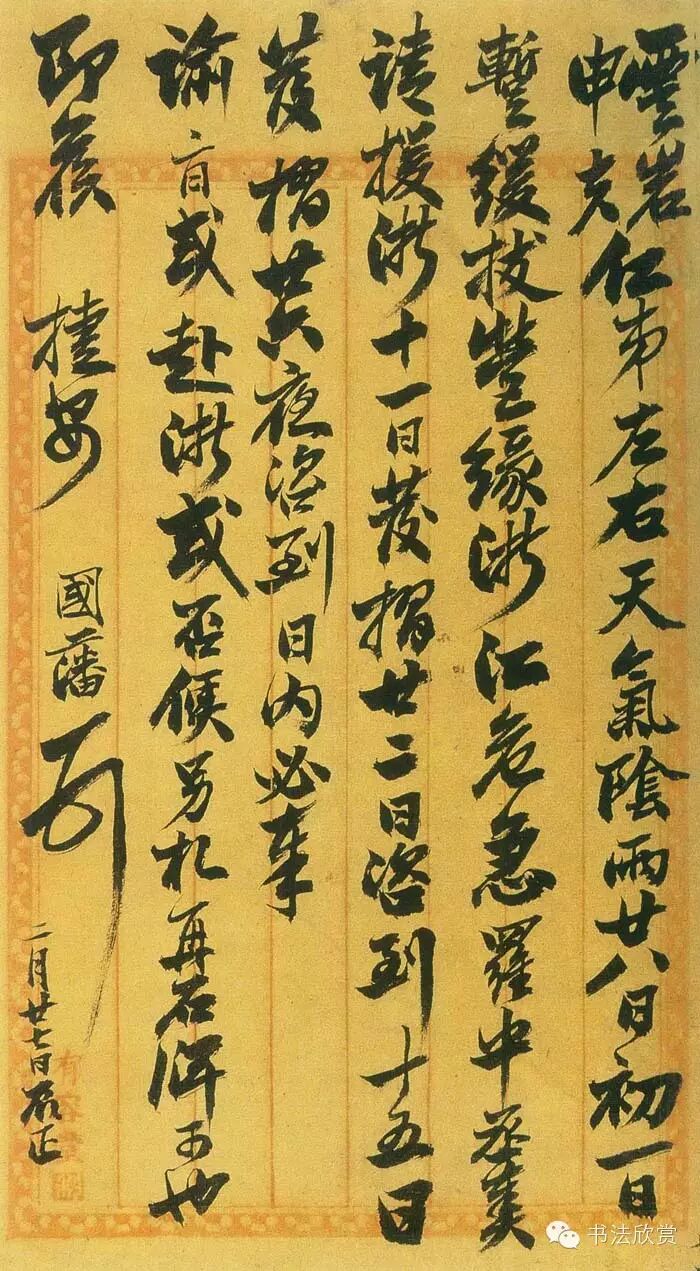 雲岩
申夫
仁弟左右天氣陰雨廿八日初一日
暫緩拔營緣浙江危急羅中丞奏
請援浙十一日發摺廿二日咨到十五日
發摺廿六夜咨到日內必奉
諭旨或赴浙或否候另札再可也
即候 捷安 國藩
二月廿七日辰正
书法欣赏